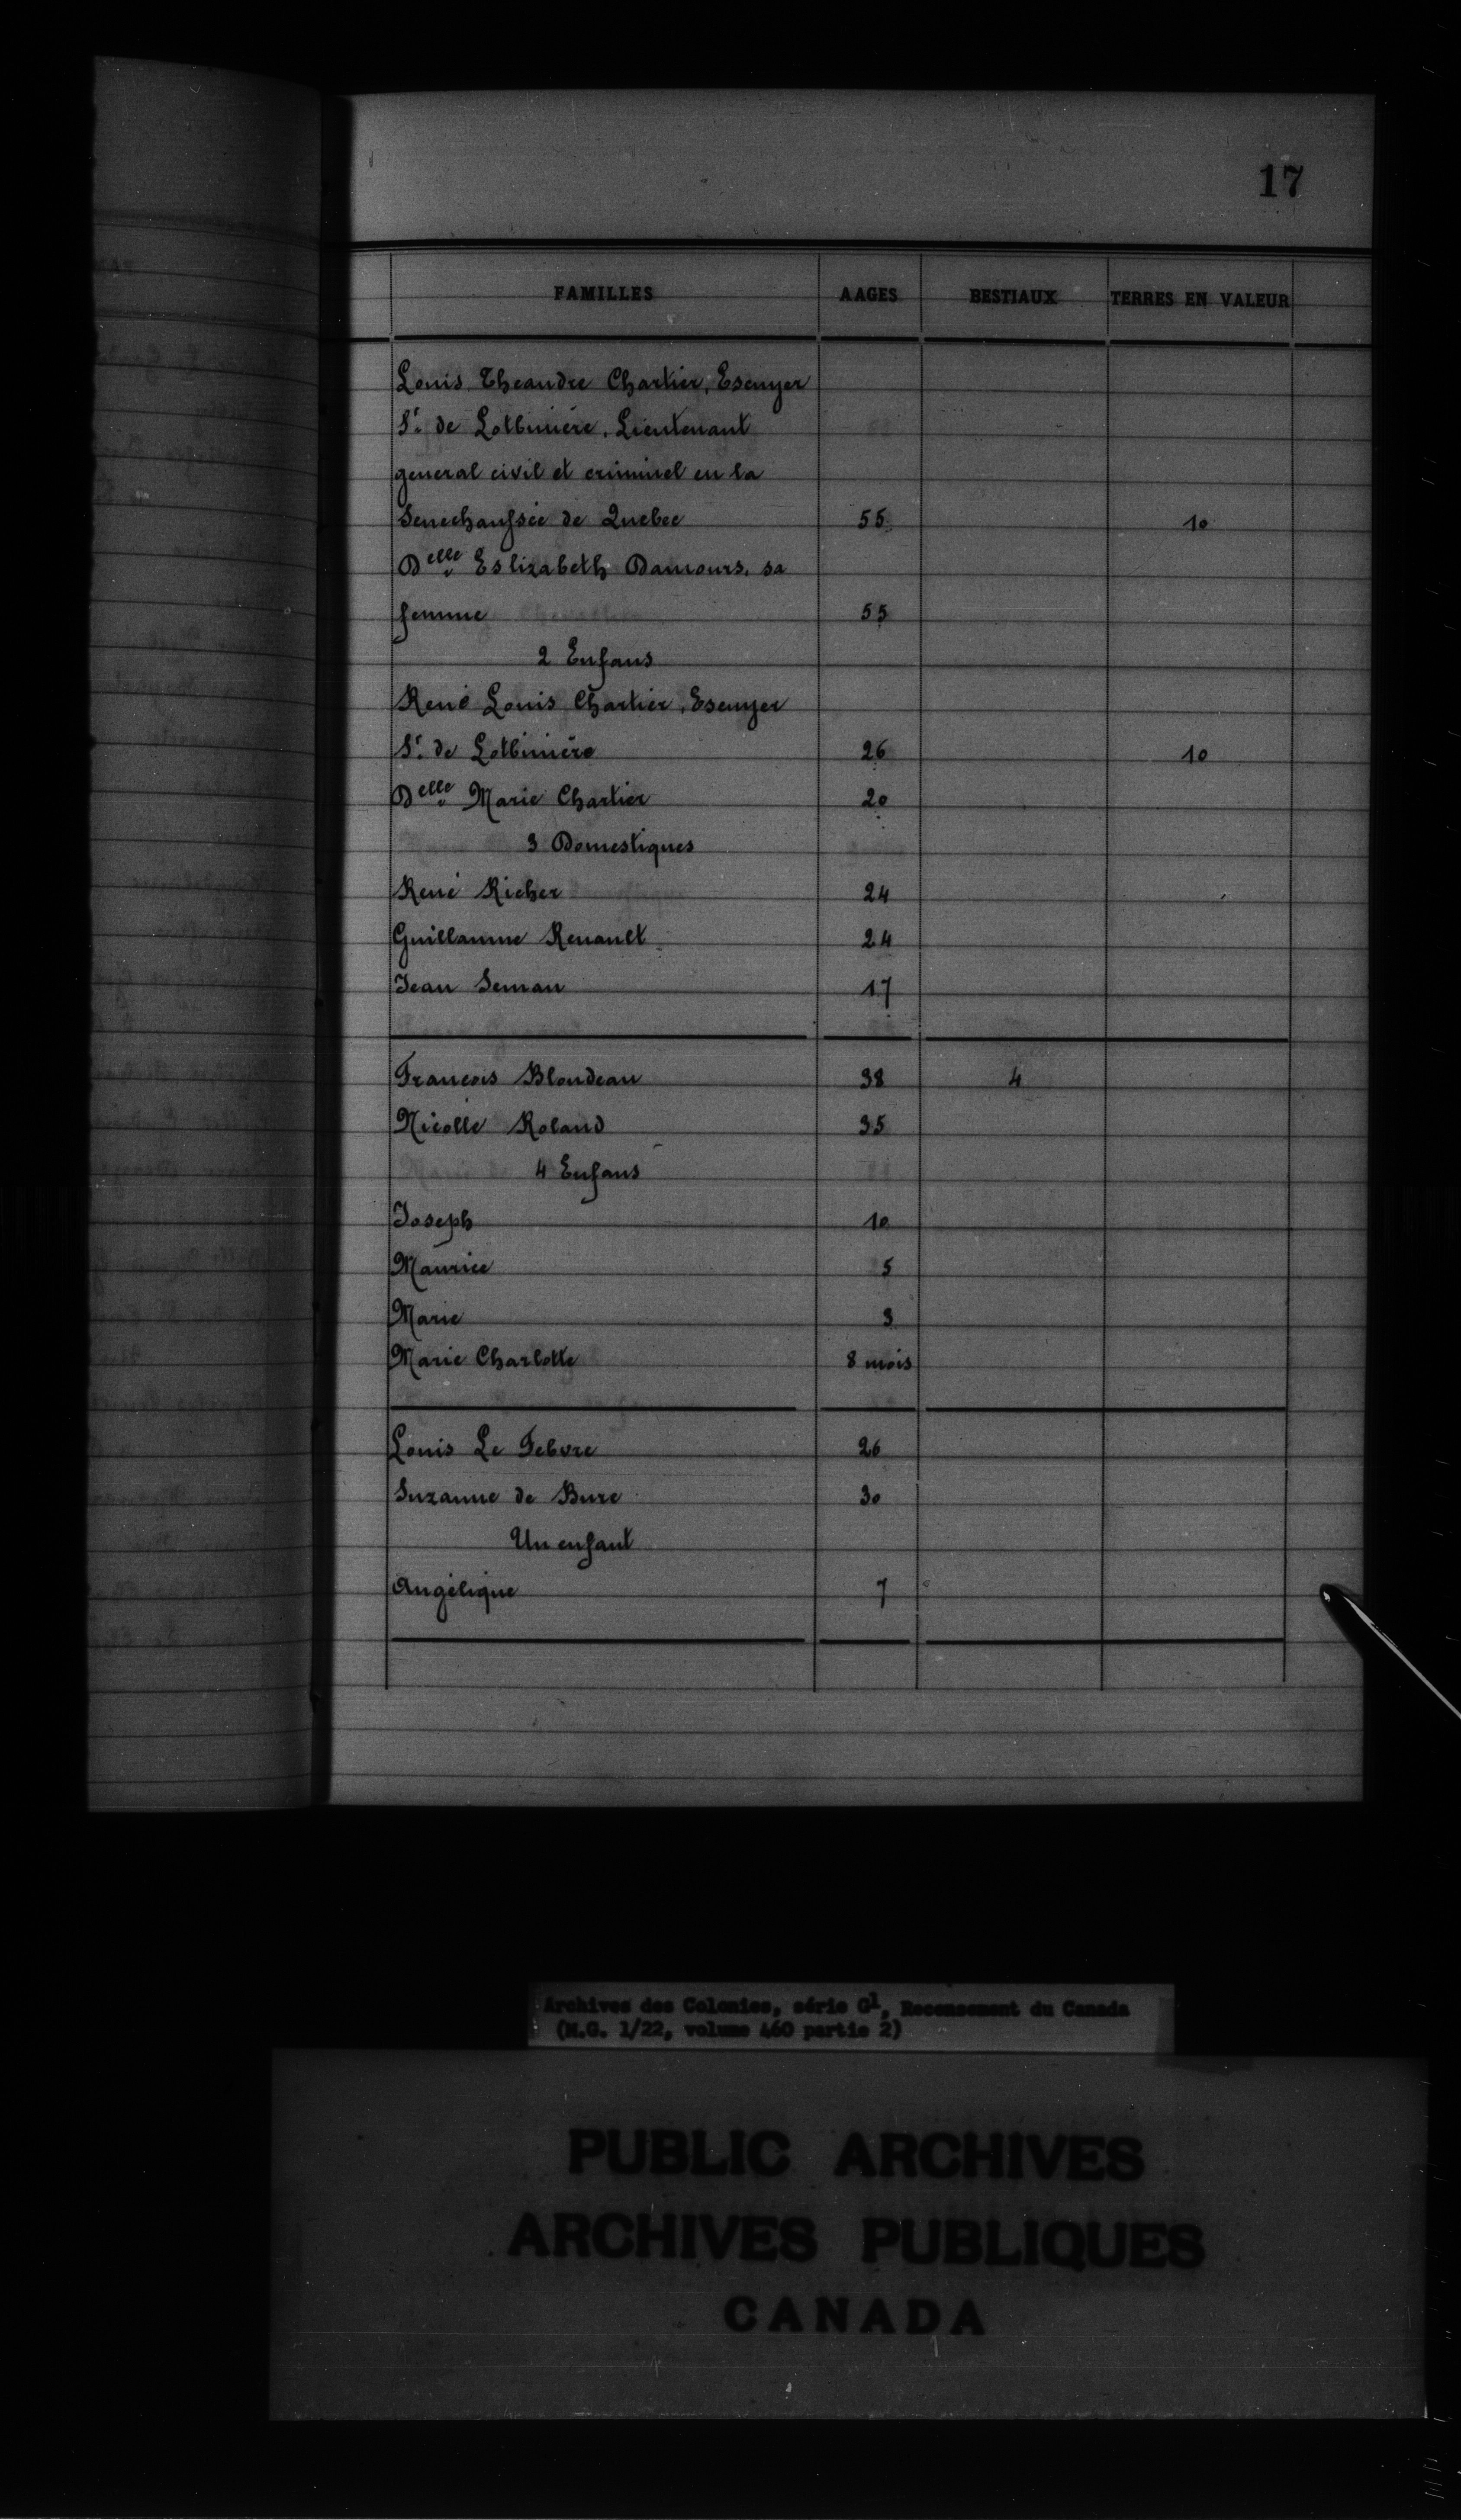 17
FAMILLES AAGES BESTIAUX TERRES EN VALEUR
Louis Theandre Chartier, Escuyer
Sr. de Lotbiniére, Lieutenant
general civil et criminel en la
Senechaussée de Quebec 55 10
Delle Eslizabeth Damours, sa
femme 55
2 Enfans
René Louis Chartier, Escuyer
Sr. de Lotbiniére 26 10
Delle Marie Chartier 20
3 Domestiques
René Richer 24
Guillaume Renault 24
Jean Seman 17
Francois Blondeau 38 4
Nicolle Roland 35
4 Enfans
Joseph 10
Maurice 5
Marie 3
Marie Charlotte 8 mois
Louis Le Febvre 26
Suzanne de Bure 30
Un enfant
Angélique 7
Archives des Colonies, série G1, Recensement du Canada
(M.G. 1/22, volume 460 partie 2)
PUBLIC ARCHIVES
ARCHIVES PUBLIQUES
CANADA